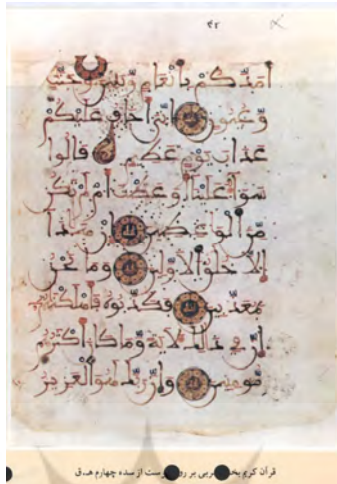 ۴۲
أمدكم بأنعام وبنين وجنت
وعيون إني أخاف عليكم
عذاب يوم عظيم قالوا
سواء علينا أوعظت أم لم تكن
من الواعظين إن هذا
إلا خلق الأولين وما نحن
بمعذبين فكذبوه فأهلكنهم
إن في ذلك لآية وما كان أكثرهم
مؤمنين وإن ربك لهو العزيز
قرآن کریم بر از سده چهارم هـ.ق